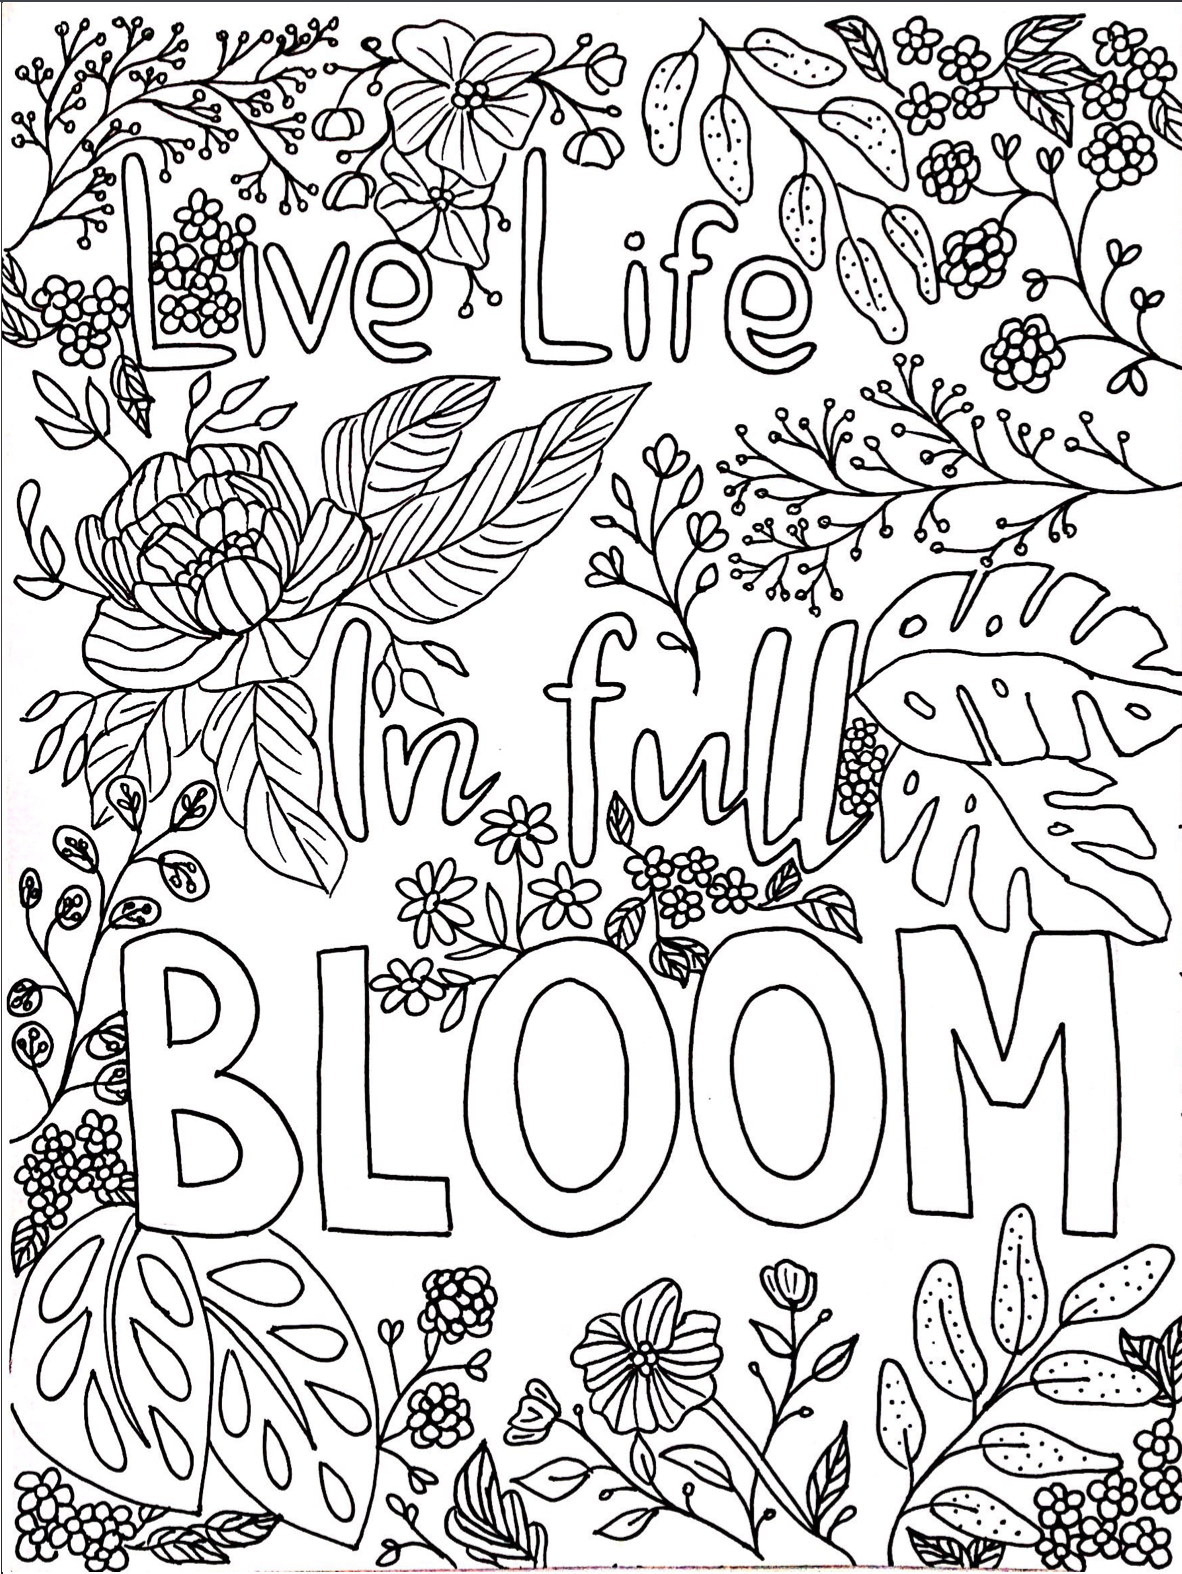 Live Life
In full
BLOOM